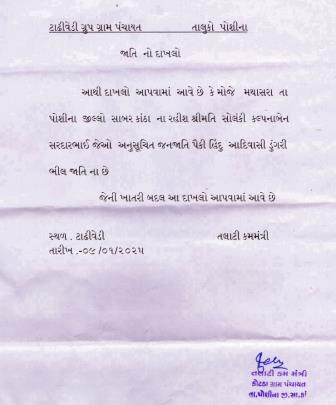 ટાઢીવેડી ગ્રુપ ગ્રામ પંચાયત તાલુકો પોશીના
જાતિ નો દાખલો
આથી દાખલો આપવામાં આવે છે કે મોજે મથાસરા તા
પોશીના જીલ્લો સાબર કાંઠા ના રહીશ શ્રીમતિ સોલંકી કલ્પનાબેન
સરદારભાઈ જેઓ અનુસુચિત જનજાતિ પૈકી હિંદુ આદિવાસી ડુંગરી
ભીલ જાતિ ના છે
જેની ખાતરી બદલ આ દાખલો આપવામાં આવે છે
સ્થળ . ટાઢીવેડી તલાટી કમમંત્રી
તારીખ .-૦૯/૦૧/૨૦૨૫
તલાટી કમ મંત્રી
કોટડા ગ્રામ પંચાયત
તા.પોશીના જી.સા.કાં